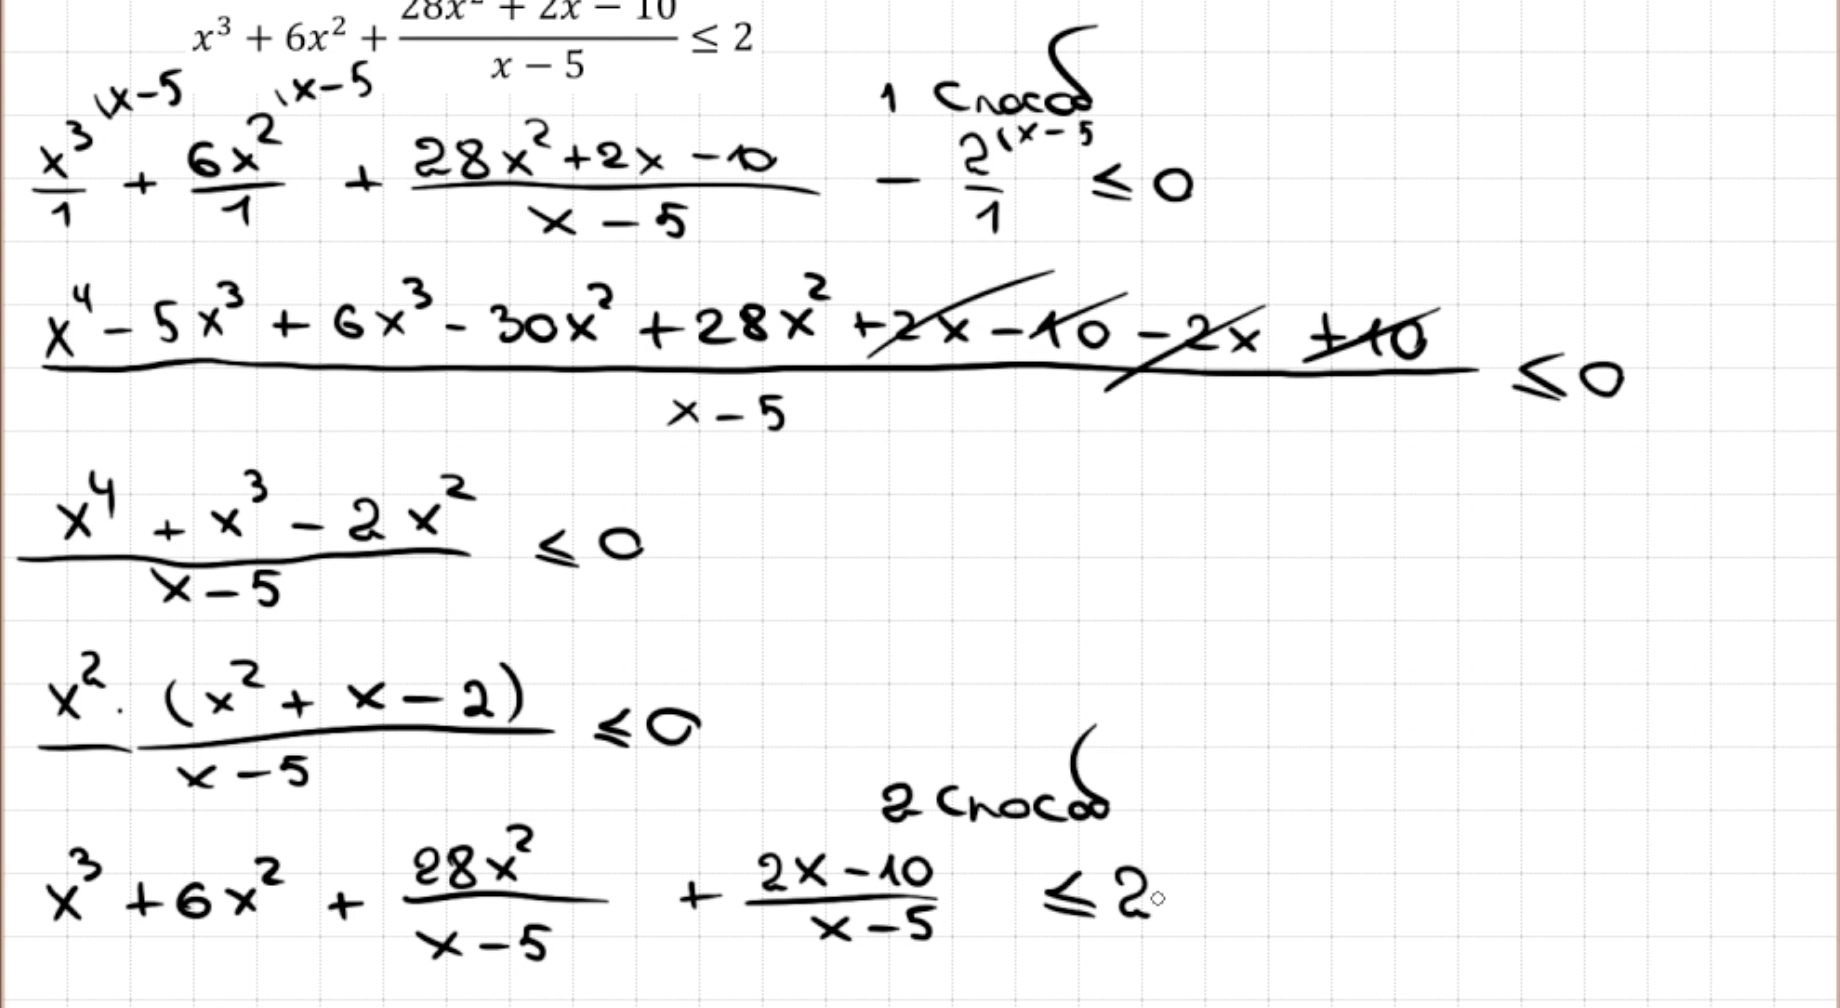 x³ + 6x² + (28x² + 2x − 10)/(x − 5) ≤ 2
1 Способ
x³/1 \x−5 + 6x²/1 \x−5 + (28x²+2x−10)/(x−5) − 2/1 \x−5 ≤ 0
(x⁴ − 5x³ + 6x³ − 30x² + 28x² + 2x − 10 − 2x + 10)/(x − 5) ≤ 0
(x⁴ + x³ − 2x²)/(x − 5) ≤ 0
x² · (x² + x − 2)/(x − 5) ≤ 0
2 Способ
x³ + 6x² + 28x²/(x − 5) + (2x − 10)/(x − 5) ≤ 2